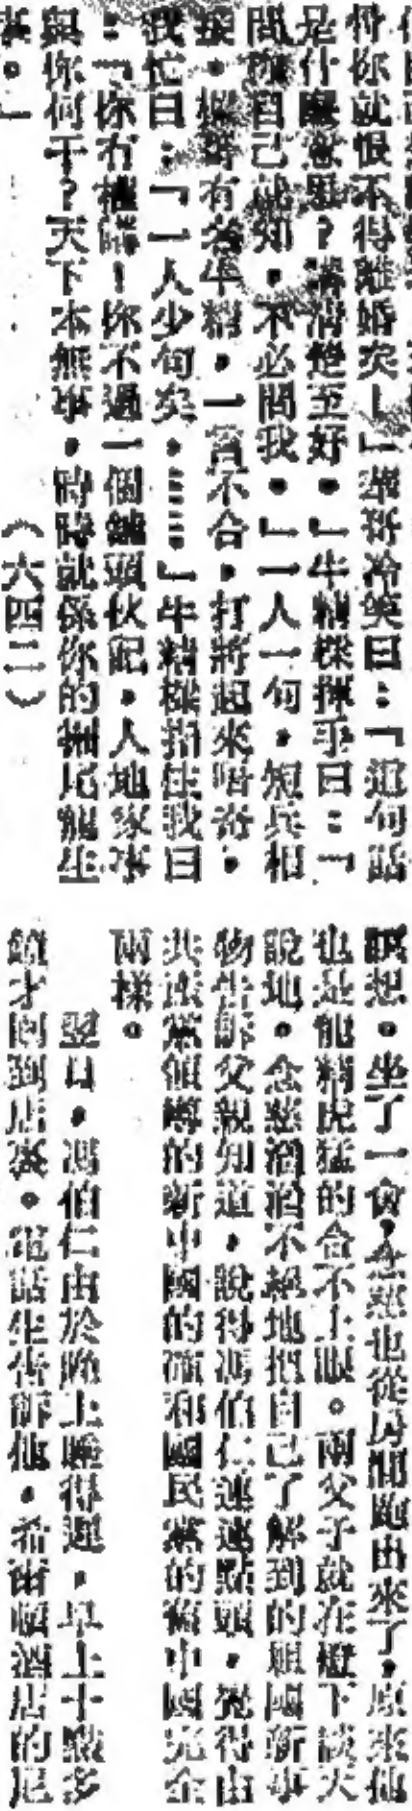 你就恨不得離婚矣！」翠珩冷笑曰：「這句話
是什麼意思？講清楚至好。」牛精樑揮手曰：「
問你自己就知，不必問我。」一人一句，短兵相
有名牛精，一言不合，打將起來唔奇，
我忙曰：「一人少句矣。……」牛精樑指住我曰
：「你有權講！你不過一個舖頭伙記，人地家事
與你何干？天下本無事，時時就係你的生
事。」
（六四二）
想。坐了一會，念慈也從房間跑出來了，原來他
也是龍精虎猛的合不上眼。兩父子就在燈下談天
說地。念慈滔滔不絕地把自己了解到的祖國新事
物告訴父親知道，說得馮伯仁連連點頭，覺得由
共產黨領導的新中國的確和國民黨的舊中國完全
兩樣。
翌日，馮伯仁由於晚上睡得遲，早上十點多
鐘才回到店裏。電話生告訴他，希爾頓酒店的尼